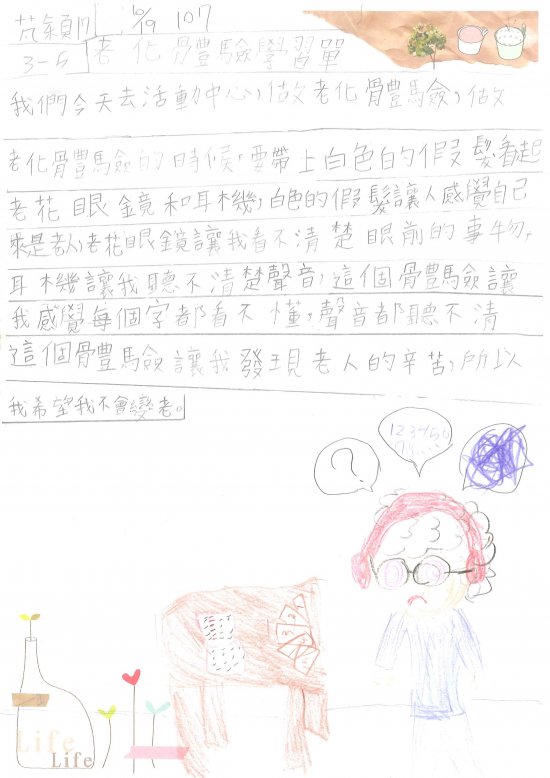 10/9 107
3-5 老化體驗學習單
我們今天去活動中心,做老化體驗,做
老化體驗的時候,要帶上白色的假髮看起
老花眼鏡和耳機,白色的假髮讓人感覺自己
來是老人,老花眼鏡讓我看不清楚眼前的事物,
耳機讓我聽不清楚聲音,這個體驗讓
我感覺每個字都看不懂,聲音都聽不清
這個體驗讓我發現老人的辛苦,所以
我希望我不會變老。
?
Life
Life